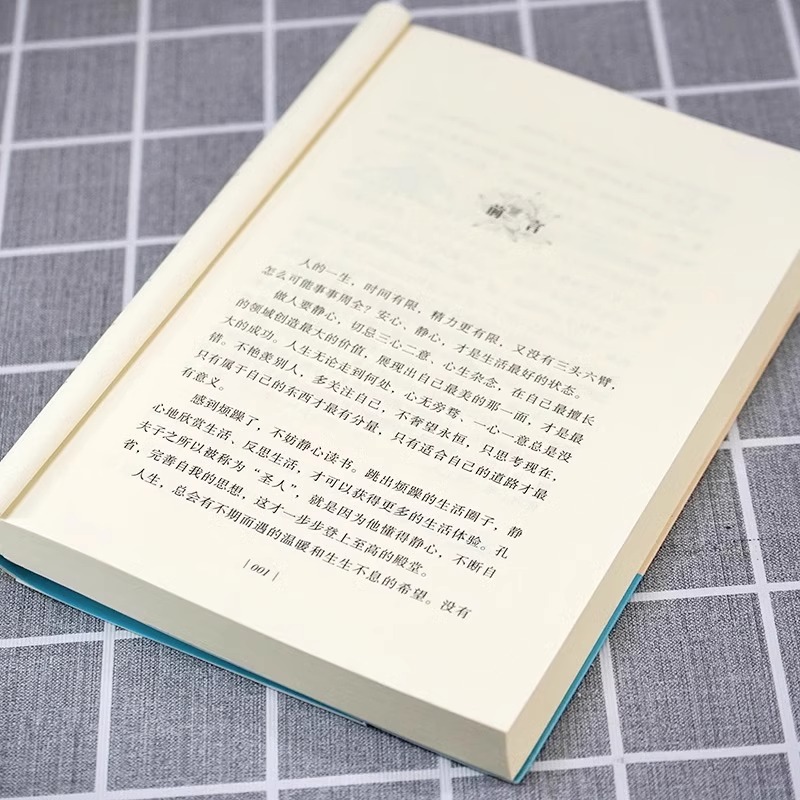 前言
人的一生，时间有限，精力更有限，又没有三头六臂，
怎么可能事事周全？安心、静心，才是生活最好的状态。
做人要静心，切忌三心二意、心生杂念，在自己最擅长
的领域创造最大的价值，展现出自己最美的那一面，才是最
大的成功。人生无论走到何处，心无旁骛、一心一意总是没
错。不艳羡别人，多关注自己，不奢望永恒，只思考现在，
只有属于自己的东西才最有分量，只有适合自己的道路才最
有意义。
感到烦躁了，不妨静心读书。跳出烦躁的生活圈子，静
心地欣赏生活，反思生活，才可以获得更多的生活体验。孔
夫子之所以被称为“圣人”，就是因为他懂得静心，不断自
省，完善自我的思想，这才一步步登上至高的殿堂。
人生，总会有不期而遇的温暖和生生不息的希望。没有
| 001 |